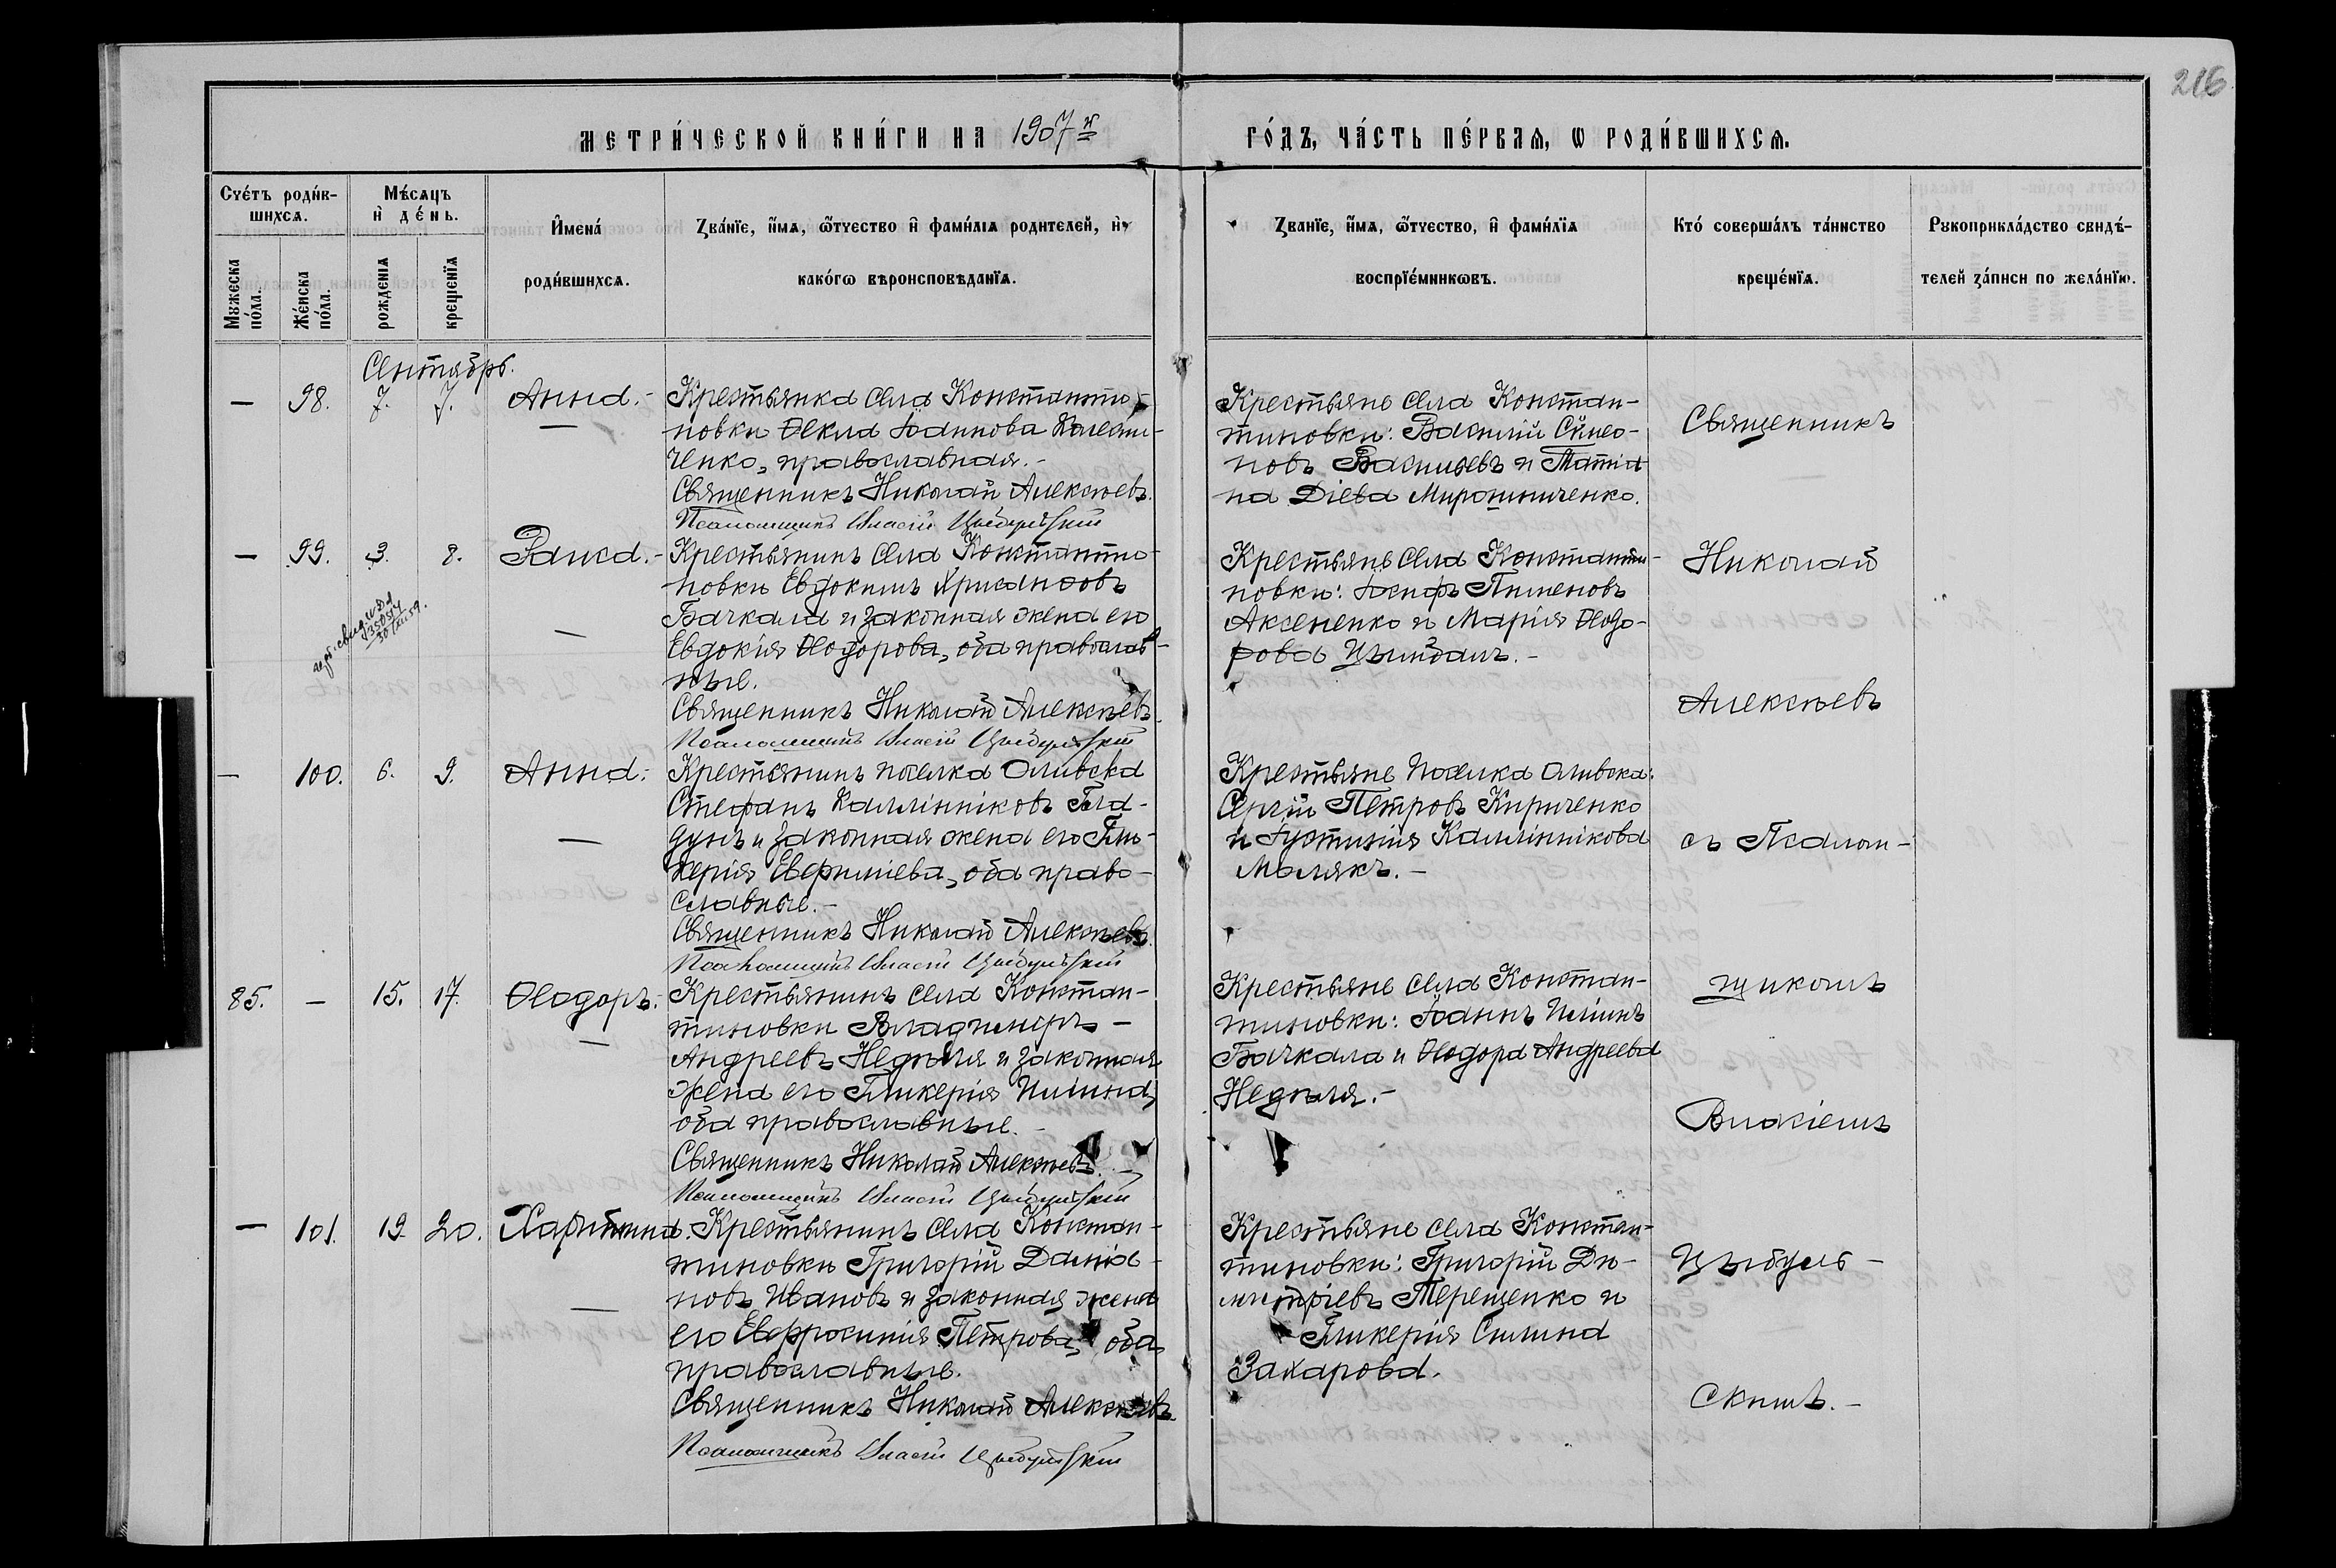 216
МЕТРИ́ЧЕСКОЙ КНИ́ГИ НА 1907й ГО́ДЪ, ЧА́СТЬ ПЕ́РВАѦ, Ѡ РОДИ́ВШИХСѦ.
Счéтъ роди́в-
шихсѧ.
Мѣ́сѧцъ
и҆ дéнь.
И҆мена́
роди́вшихсѧ.
Зва́нїе, и҆́мѧ, ѻ҆́тчество и҆ фами́лїѧ родителей, и҆
како́гѡ вѣроисповѣданїѧ.
Зва́нїе, и҆́мѧ, ѻ҆́тчество, и҆ фами́лїѧ
воспрїéмникѡвъ.
Кто́ соверша́лъ та́инство
крещéнїѧ.
Рꙋкоприкла́дство свидѣ́-
телей за́писи по жела́нїю.
Мꙋжеска
по́ла.
Же́нска
по́ла.
рожденїѧ
крещенїѧ
Сентябрь.
— 98. 7. 7. Анна.-
Крестьянка села Константи-
новки Ѳекла Іоаннова Колесни-
ченко, православная.-
Священникъ Николай Алексѣевъ.
Псаломщикъ Власій Цыбульскій
Крестьяне села Констан-
тиновки: Василій Сѵмео-
новъ Васильевъ и Татіа-
на Діева Мирошниченко.
— 99. 3. 8. Раиса.-
Крестьянинъ села Константи-
новки Евдокимъ Хрисанѳовъ
Бачкала и законная жена его
Евдокія Ѳеодорова, оба православ-
ные.
Священникъ Николай Алексѣевъ.
Псаломщикъ Власій Цыбульскій
Крестьяне села Константи-
новки: Іосифъ Пименовъ
Аксененко и Марія Ѳеодо-
рова Цымбалъ.-
— 100. 6. 9. Анна.-
Крестьянинъ поселка Оливска
Стефанъ Каллинниковъ Гла-
дунъ и законная жена его Гли-
керія Евфиміева, оба право-
славные.-
Священникъ Николай Алексѣевъ.
Псаломщикъ Власій Цыбульскій
Крестьяне поселка Оливска:
Сергій Петровъ Кириченко
и Іустинія Каллинникова
Малякъ.-
85. — 15. 17. Ѳеодоръ.-
Крестьянинъ села Констан-
тиновки Владиміръ -
Андреевъ Недѣля и законная
жена его Гликерія Ильина,
оба православные.-
Священникъ Николай Алексѣевъ.-
Псаломщикъ Власій Цыбульскій
Крестьяне села Констан-
тиновки: Іоаннъ Ильинъ
Бачкала и Ѳеодора Андреева
Недѣля.-
— 101. 19. 20. Харитина.
Крестьянинъ села Констан-
тиновки Григорій Даміа-
новъ Ивановъ и законная жена
его Евфросинія Петрова, оба
православные.
Священникъ Николай Алексѣевъ.
Псаломщикъ Власій Цыбульскій
Крестьяне села Констан-
тиновки: Григорій Ди-
митріевъ Терещенко и
Гликерія Силина
Захарова.
Священникъ
Николай
Алексѣевъ
съ Псалом-
щикомъ
Власіемъ
Цыбуль-
скимъ.-